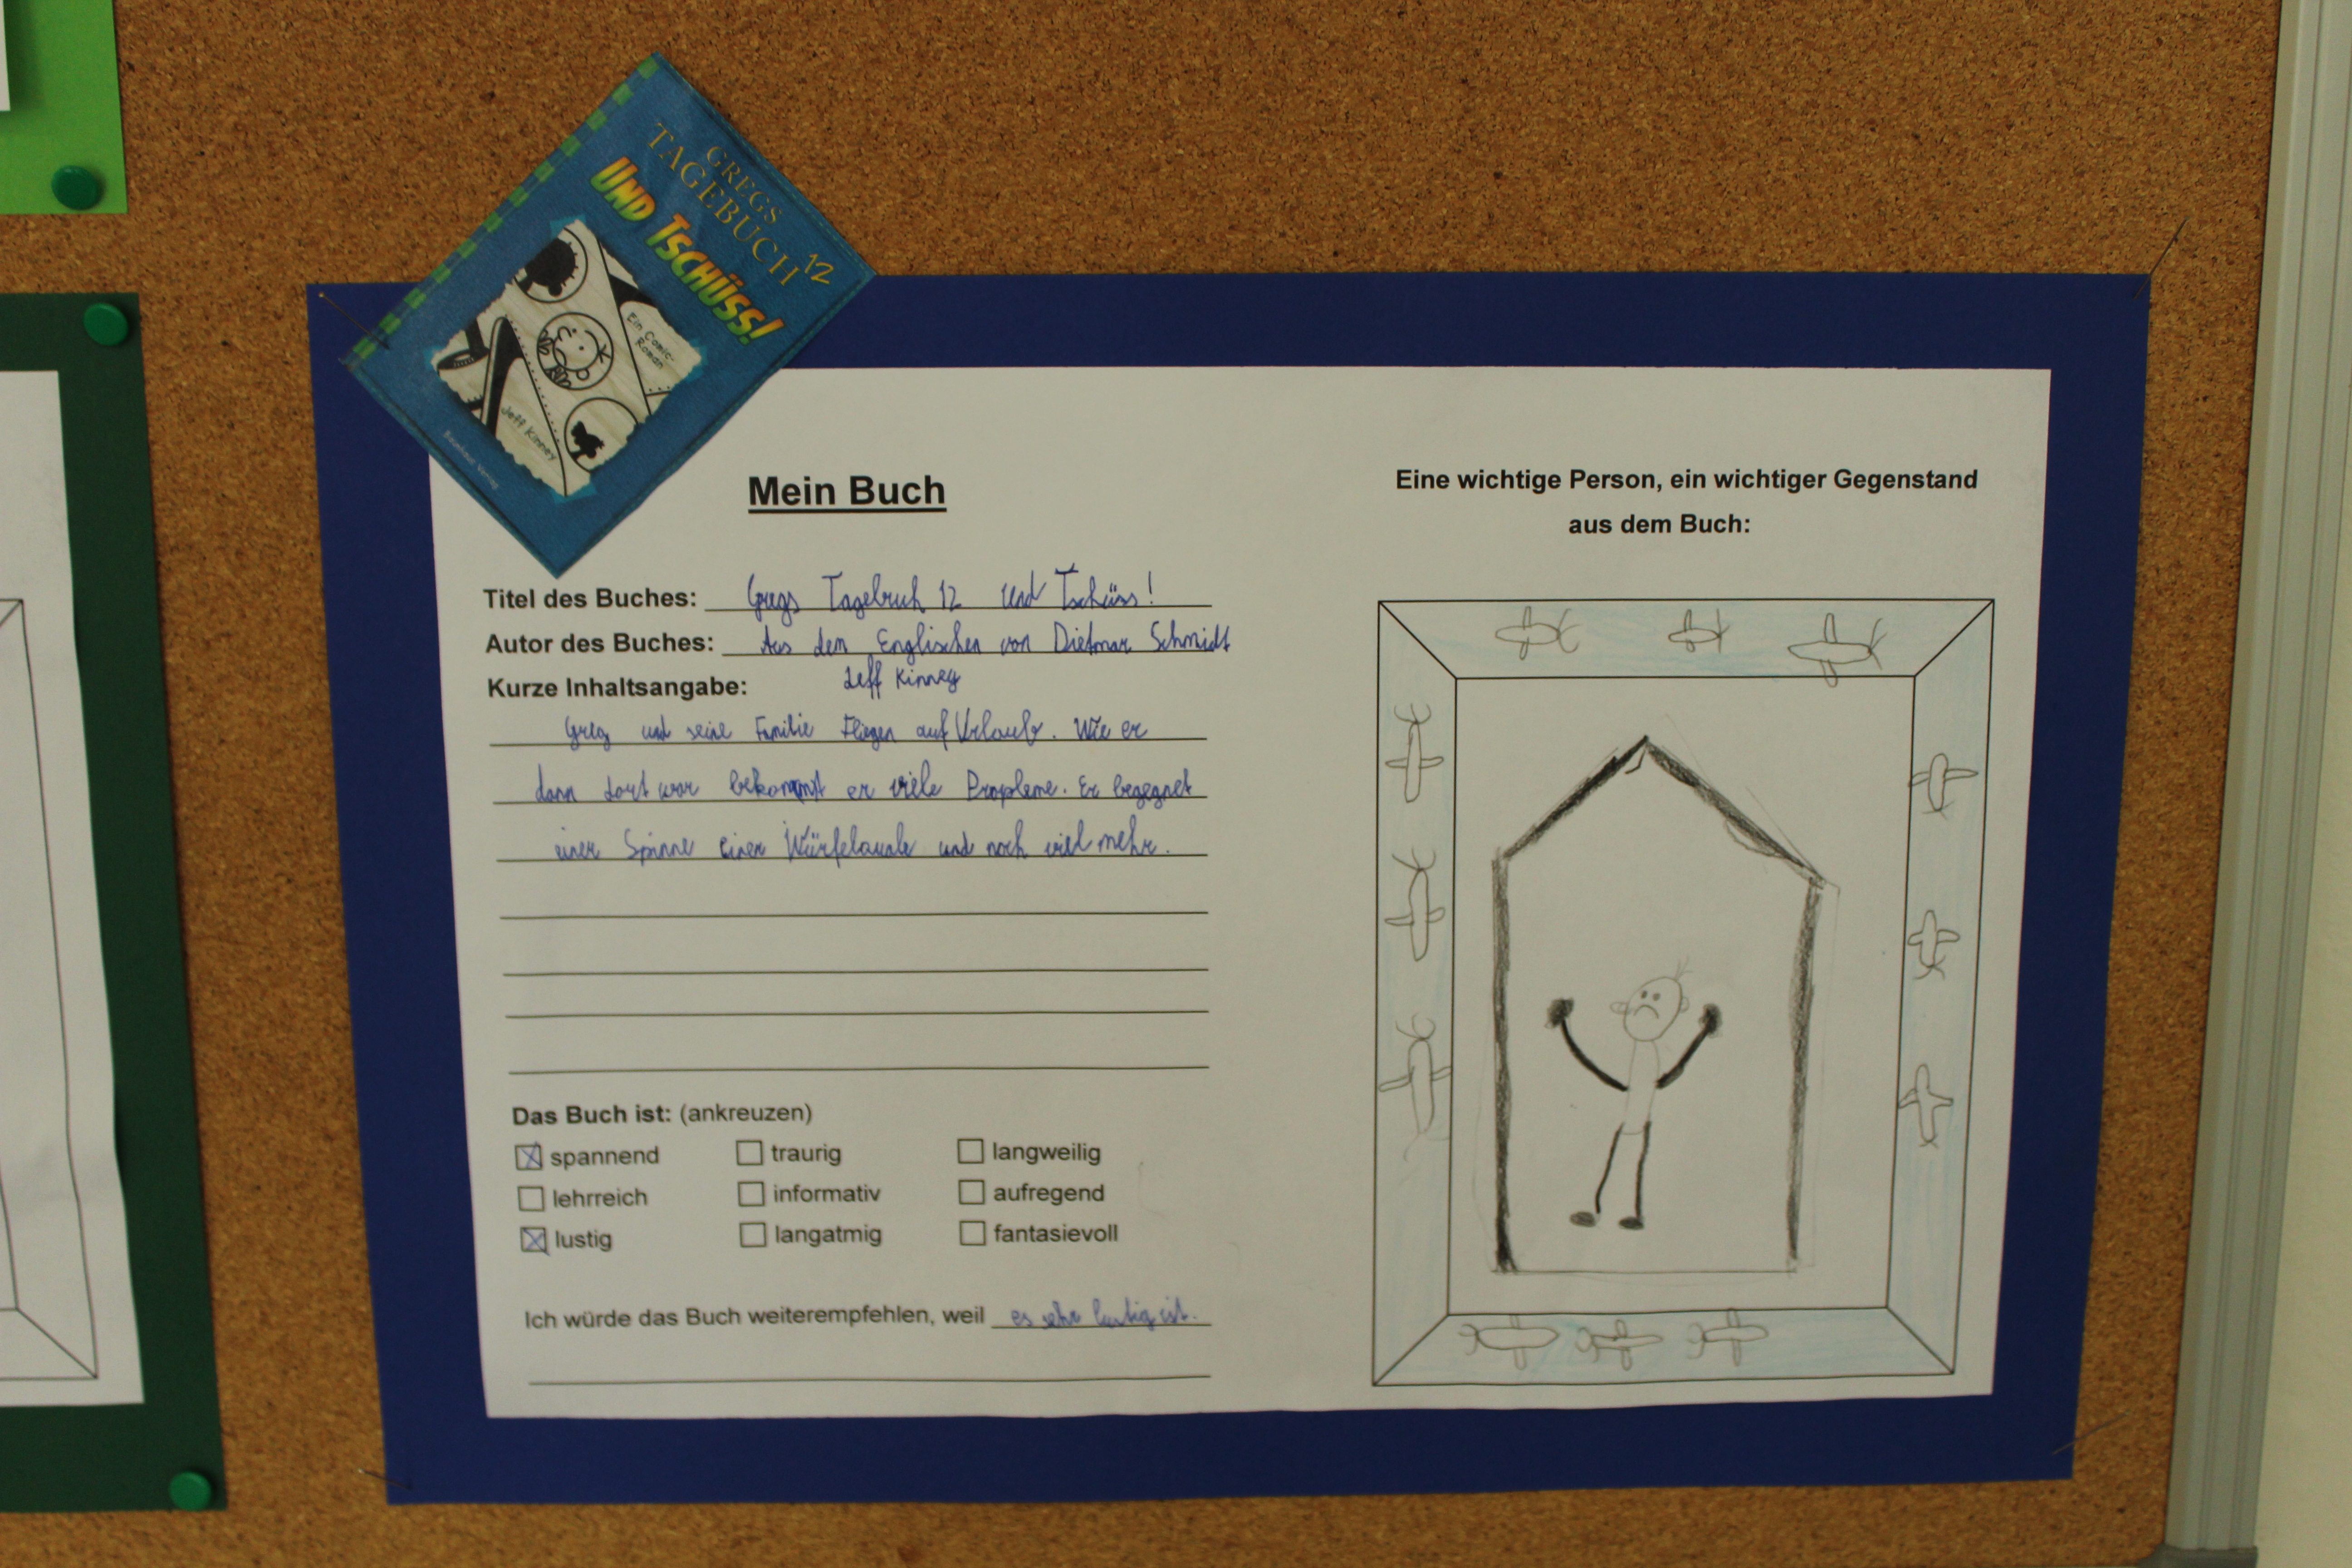 GREGS
TAGEBUCH 12
UND TSCHÜSS!
Ein Comic-
Roman
Jeff Kinney
Baumhaus Verlag
Mein Buch
Titel des Buches: Gregs Tagebuch 12 Und Tschüss!
Autor des Buches: Aus dem Englischen von Dietmar Schmidt
Jeff Kinney
Kurze Inhaltsangabe:
Greg und seine Familie Fliegen auf Urlaub. Wie er
dann dort war bekommt er viele Propleme. Er begegnet
einer Spinne einer Würfelquale und noch viel mehr.
Das Buch ist: (ankreuzen)
spannend traurig langweilig
lehrreich informativ aufregend
lustig langatmig fantasievoll
Ich würde das Buch weiterempfehlen, weil es sehr lustig ist.
Eine wichtige Person, ein wichtiger Gegenstand
aus dem Buch: